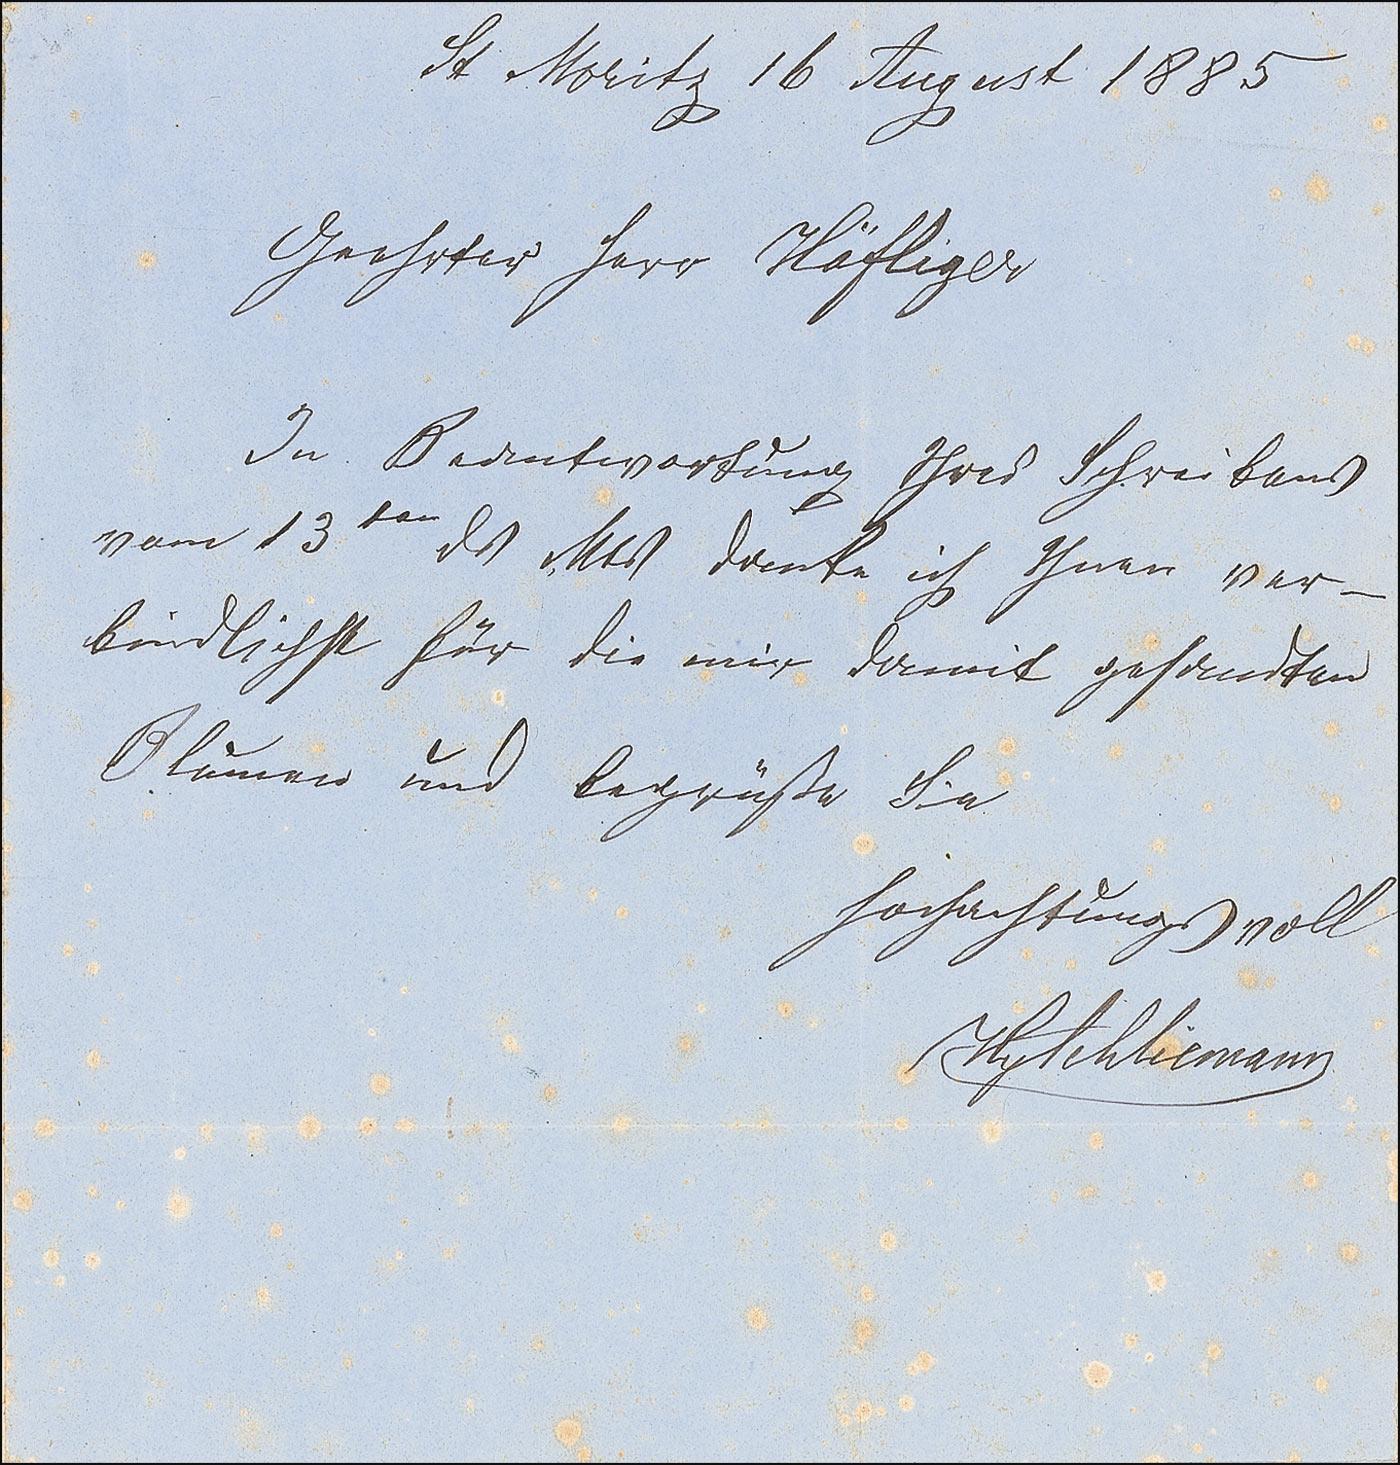 St Moritz 16 August 1885
Geehrter Herr Häfliger
In Beantwortung Ihres Schreibens
vom 13ten ds Mts danke ich Ihnen ver-
bindlichst für die mir damit gesandten
Blumen und begrüße Sie
hochachtungsvoll
Hy Schliemann